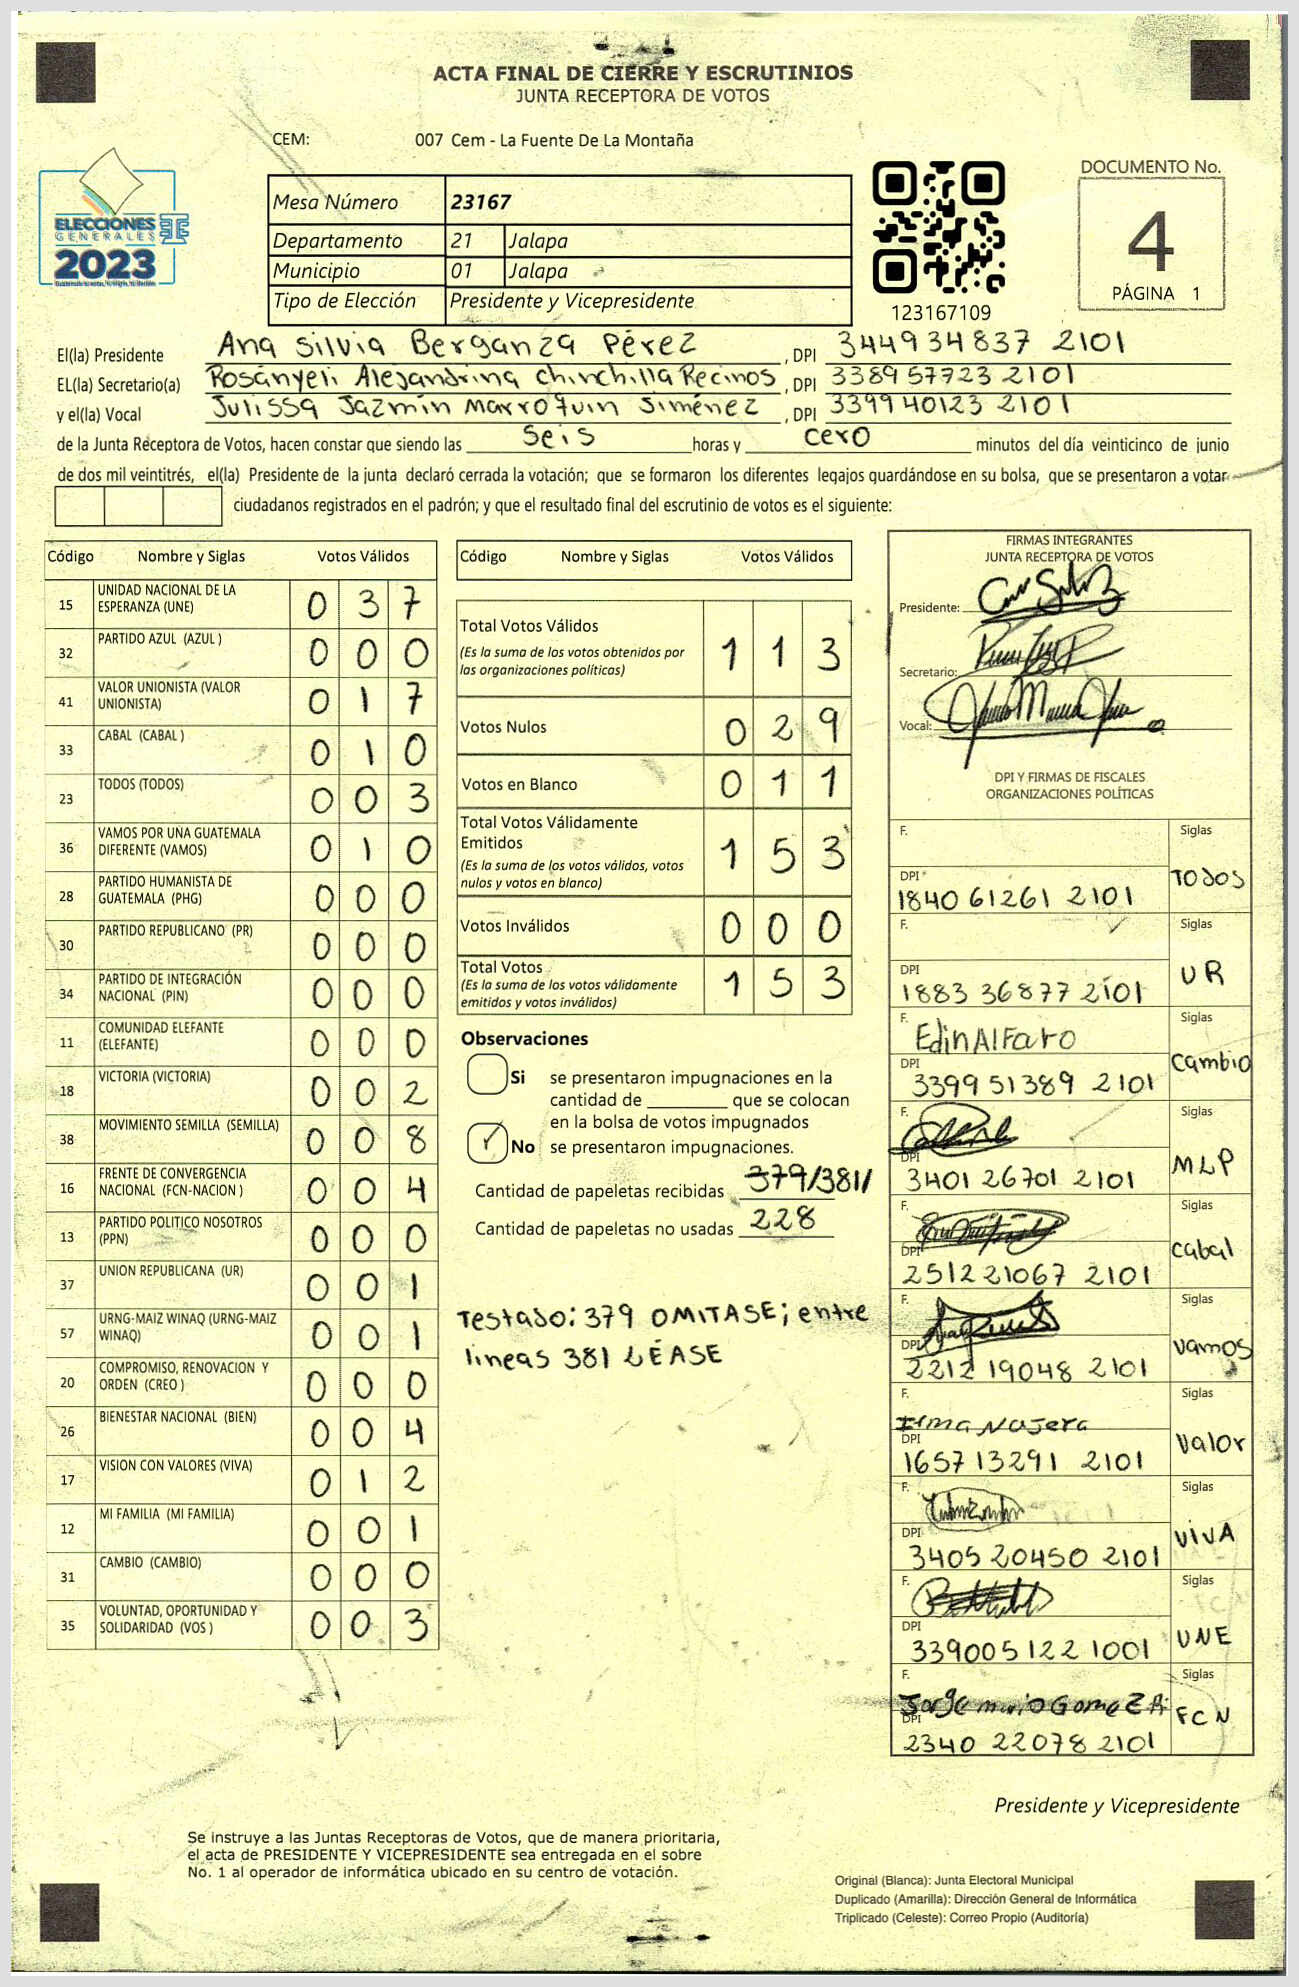 ACTA FINAL DE CIERRE Y ESCRUTINIOS
JUNTA RECEPTORA DE VOTOS
CEM: 007 Cem - La Fuente De La Montaña
ELECCIONES
GENERALES
2023
Mesa Número 23167
Departamento 21 Jalapa
Municipio 01 Jalapa
Tipo de Elección Presidente y Vicepresidente
123167109
DOCUMENTO No.
4
PÁGINA 1
El(la) Presidente Ana Silvia Berganza Pérez, DPI 344934837 2101
EL(la) Secretario(a) Rosányeli Alejandrina Chinchilla Recinos, DPI 338957723 2101
y el(la) Vocal Julissa Jazmín Marroquin Jiménez, DPI 339940123 2101
de la Junta Receptora de Votos, hacen constar que siendo las seis horas y cero minutos del día veinticinco de junio
de dos mil veintitrés, el(la) Presidente de la junta declaró cerrada la votación; que se formaron los diferentes legajos guardándose en su bolsa, que se presentaron a votar
ciudadanos registrados en el padrón; y que el resultado final del escrutinio de votos es el siguiente:
Código Nombre y Siglas Votos Válidos
15 UNIDAD NACIONAL DE LA ESPERANZA (UNE) 0 3 7
32 PARTIDO AZUL (AZUL ) 0 0 0
41 VALOR UNIONISTA (VALOR UNIONISTA) 0 1 7
33 CABAL (CABAL ) 0 1 0
23 TODOS (TODOS) 0 0 3
36 VAMOS POR UNA GUATEMALA DIFERENTE (VAMOS) 0 1 0
28 PARTIDO HUMANISTA DE GUATEMALA (PHG) 0 0 0
30 PARTIDO REPUBLICANO (PR) 0 0 0
34 PARTIDO DE INTEGRACIÓN NACIONAL (PIN) 0 0 0
11 COMUNIDAD ELEFANTE (ELEFANTE) 0 0 0
18 VICTORIA (VICTORIA) 0 0 2
38 MOVIMIENTO SEMILLA (SEMILLA) 0 0 8
16 FRENTE DE CONVERGENCIA NACIONAL (FCN-NACION ) 0 0 4
13 PARTIDO POLITICO NOSOTROS (PPN) 0 0 0
37 UNION REPUBLICANA (UR) 0 0 1
57 URNG-MAIZ WINAQ (URNG-MAIZ WINAQ) 0 0 1
20 COMPROMISO, RENOVACION Y ORDEN (CREO ) 0 0 0
26 BIENESTAR NACIONAL (BIEN) 0 0 4
17 VISION CON VALORES (VIVA) 0 1 2
12 MI FAMILIA (MI FAMILIA) 0 0 1
31 CAMBIO (CAMBIO) 0 0 0
35 VOLUNTAD, OPORTUNIDAD Y SOLIDARIDAD (VOS ) 0 0 3
Código Nombre y Siglas Votos Válidos
Total Votos Válidos 1 1 3
(Es la suma de los votos obtenidos por
las organizaciones políticas)
Votos Nulos 0 2 9
Votos en Blanco 0 1 1
Total Votos Válidamente
Emitidos 1 5 3
(Es la suma de los votos válidos, votos
nulos y votos en blanco)
Votos Inválidos 0 0 0
Total Votos 1 5 3
(Es la suma de los votos válidamente
emitidos y votos inválidos)
Observaciones
Si se presentaron impugnaciones en la
cantidad de ________ que se colocan
en la bolsa de votos impugnados
No se presentaron impugnaciones.
Cantidad de papeletas recibidas 379/381/
Cantidad de papeletas no usadas 228
Testado: 379 OMITASE; entre
lineas 381 LÉASE
FIRMAS INTEGRANTES
JUNTA RECEPTORA DE VOTOS
Presidente:
Secretario:
Vocal:
DPI Y FIRMAS DE FISCALES
ORGANIZACIONES POLÍTICAS
F. Siglas
DPI TODOS
1840 61261 2101
F. Siglas
DPI UR
1883 36877 2101
F. Edin Alfaro Siglas
DPI Cambio
3399 51389 2101
F. Siglas
DPI MLP
3401 26701 2101
F. Siglas
DPI Cabal
2512 21067 2101
F. Siglas
DPI Vamos
2212 19048 2101
F. Irma Najera Siglas
DPI Valor
1657 13291 2101
F. Siglas
DPI VIVA
3405 20450 2101
F. Siglas
DPI UNE
339005122 1001
F. Jorge mario Gomez Siglas
DPI FCN
2340 22078 2101
Presidente y Vicepresidente
Se instruye a las Juntas Receptoras de Votos, que de manera prioritaria,
el acta de PRESIDENTE Y VICEPRESIDENTE sea entregada en el sobre
No. 1 al operador de informática ubicado en su centro de votación.
Original (Blanca): Junta Electoral Municipal
Duplicado (Amarilla): Dirección General de Informática
Triplicado (Celeste): Correo Propio (Auditoría)